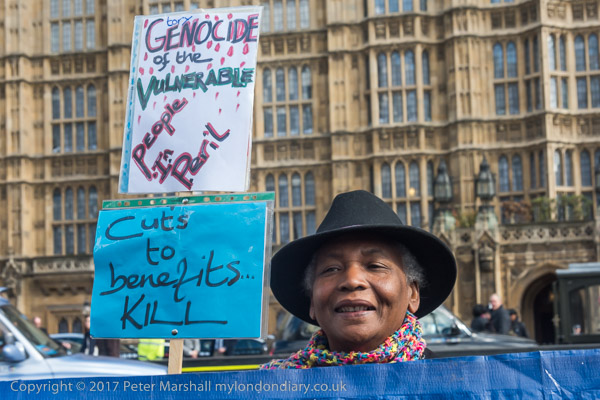 tory
GENOCIDE
of the
VULNERABLE
People
in
Peril
Cuts
to
benefits...
KILL
Copyright © 2017 Peter Marshall mylondondiary.co.uk